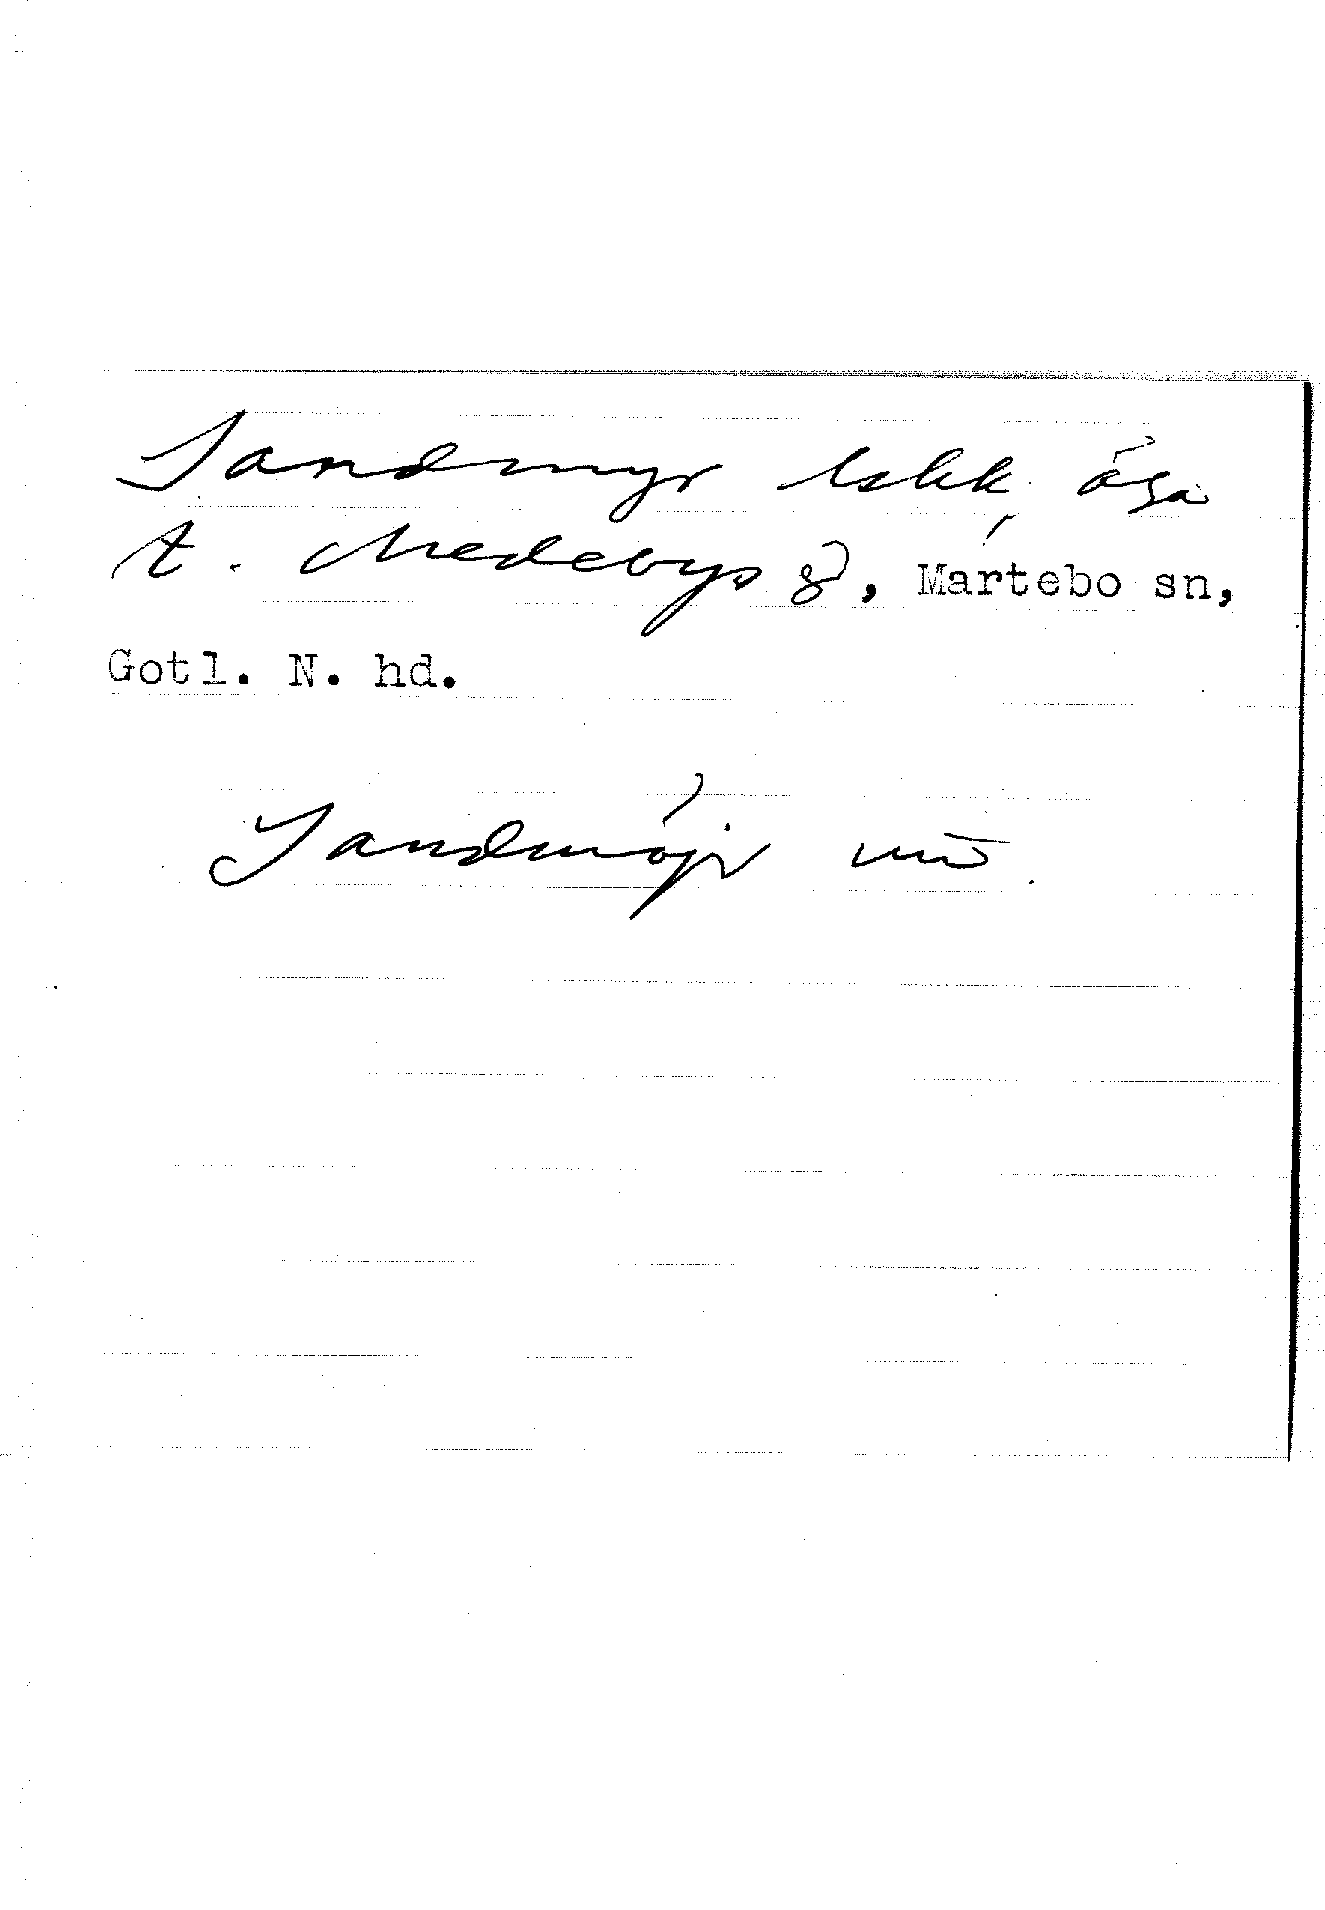 Sandmyr lskk, äga
t. Medebys gd, Martebo sn,
Gotl. N. hd.
Sandmöjr